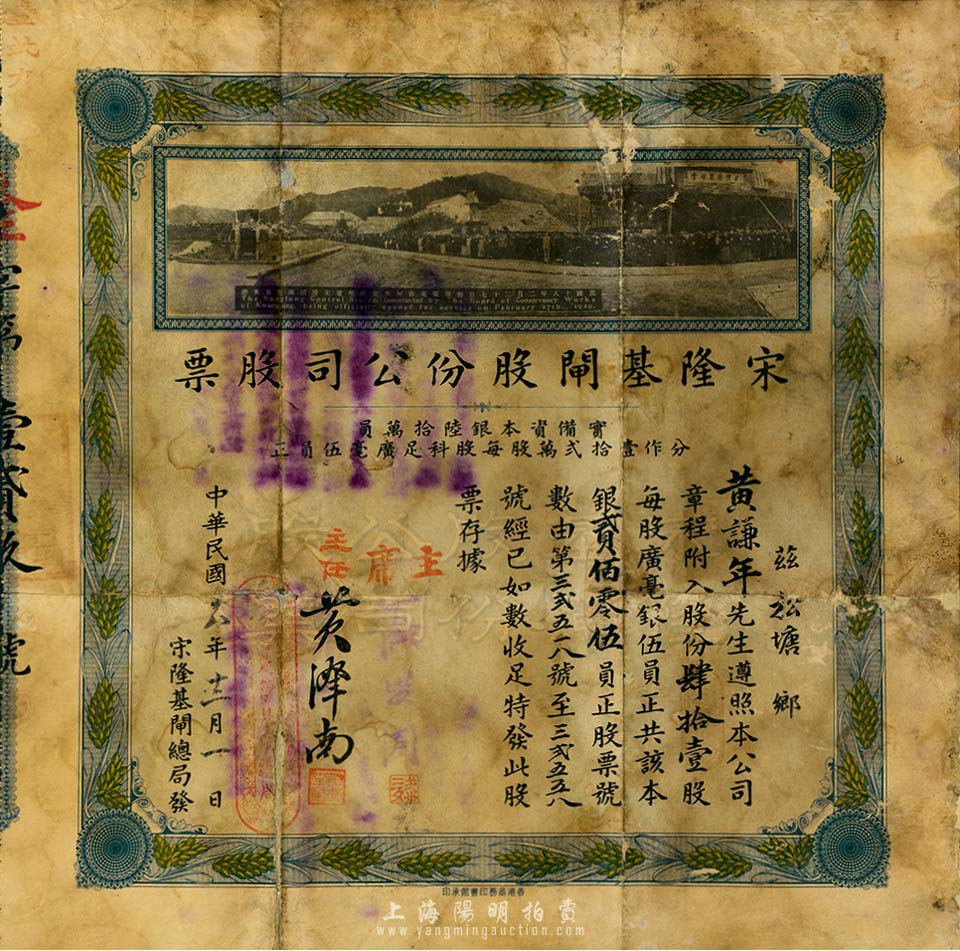 The Sunglung Control Sluice Constructed by The Board of Conservancy Works
of Kwangtung being officially opened for service on February 27th. 1929
宋隆基閘股份公司股票
實備資本銀陸拾萬員
分作壹拾弍萬股每股科足廣毫伍員正
茲 松塘 鄉
黃謙年先生遵照本公司
章程附入股份肆拾壹股
每股廣毫銀伍員正共該本
銀貳佰零伍員正股票號
數由第三弍五一八號至三弍五五八
號經已如數收足特發此股
票存據
主席
主任
黃澤南
中華民國十八年十二月一日
宋隆基閘總局發
香港商務印書館承印
上海陽明拍賣
www.yangmingauction.com